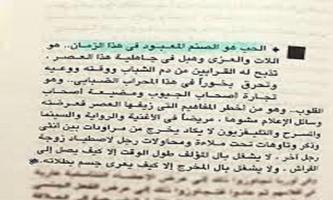 الحب هو الصنم المعبود في هذا الزمان.. هو
اللات والعزى وهبل في جاهلية هذا العصر.
تذبح له القرابين من دم الشباب ووقته ووعيه
وتحرق بخوراً في هذا المحراب الضبابي.. وهو
تجارة أصحاب الجيوب ومضيعة أصحاب
القلوب.. وهو من أخطر المفاهيم التي زيفها العصر فعرضته
وسائل الإعلام مشوها. مريضاً في الأغنية والرواية والسينما
والمسرح والتليفزيون لا يكاد يخرج من مراودات بين أنثى
وذكر وتأوهات تحت ملاءة ومحاولات رجل لاصطياد زوجة
رجل آخر. لا يشغل بال المؤلف طول الوقت إلا كيف يصل إلى
الفراش. ولا يشغل بال المخرج إلا كيف يعرى جسم بطلاته.